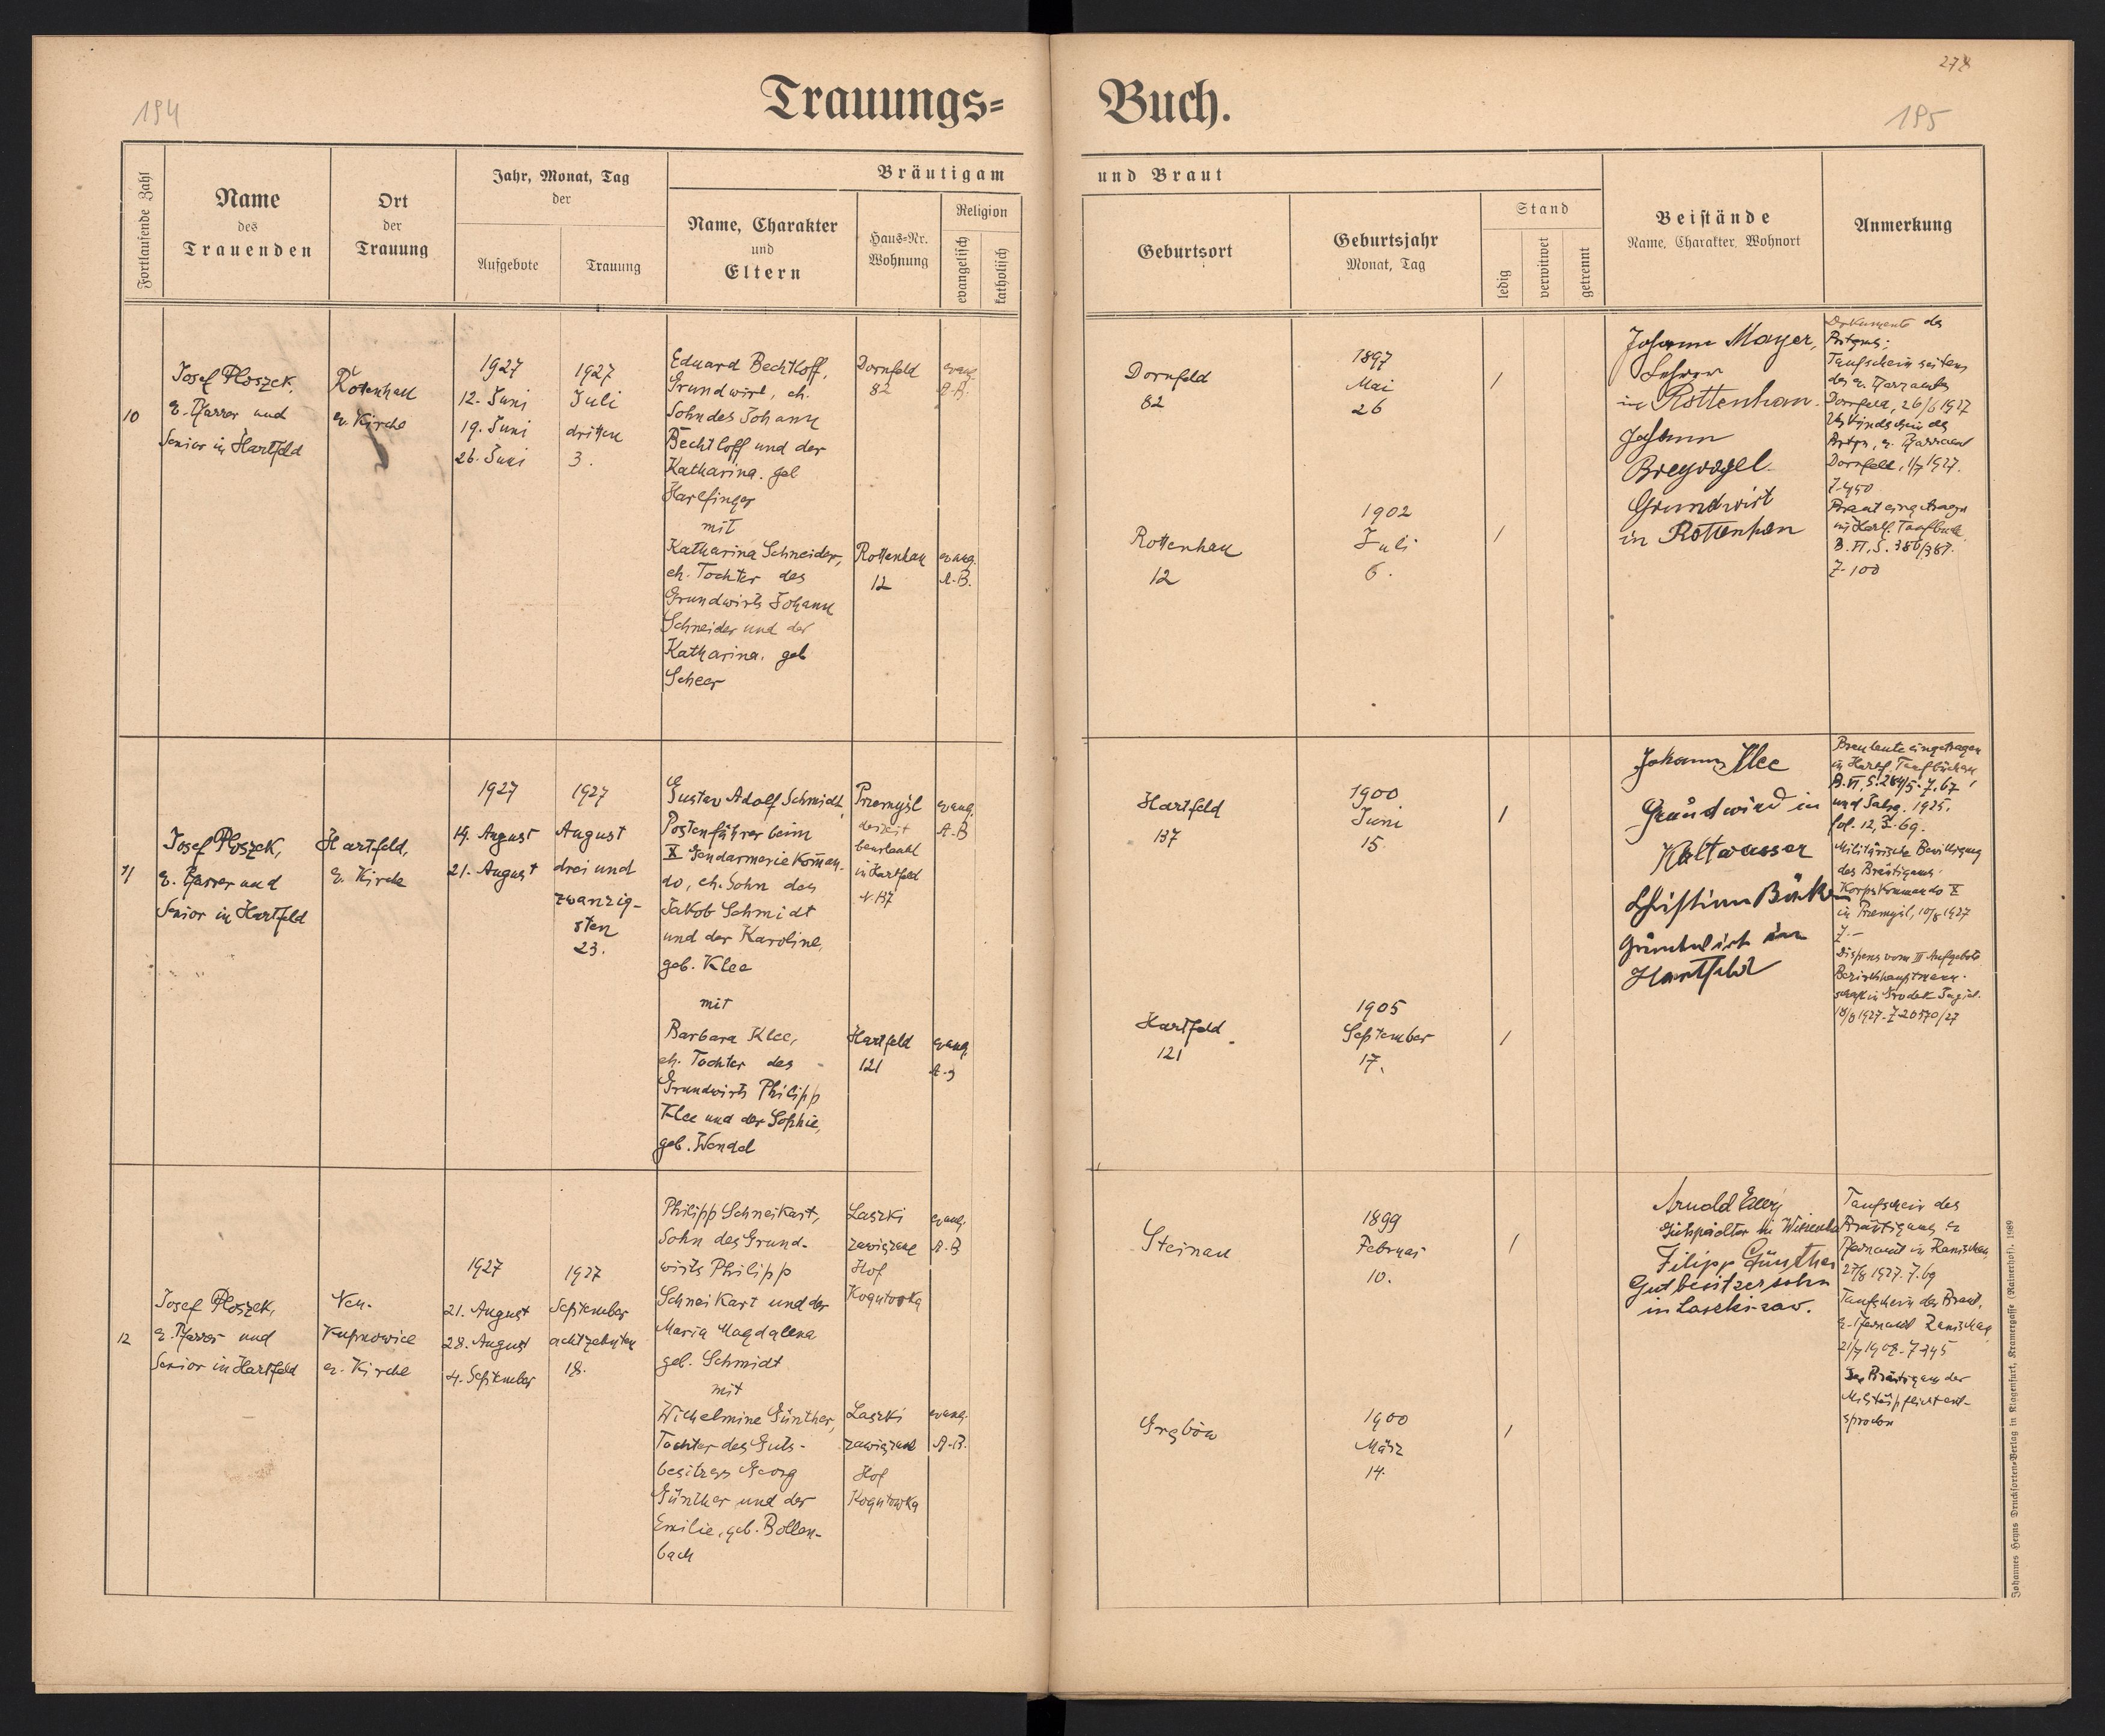 194
Trauungs=
Buch.
278
195
Fortlaufende Zahl
Name
des
Trauenden
Ort
der
Trauung
Jahr, Monat, Tag
der
Aufgebote
Trauung
Bräutigam
Name, Charakter
und
Eltern
Haus=Nr.
Wohnung
Religion
evangelisch
katholisch
und Braut
Geburtsort
Geburtsjahr
Monat, Tag
Stand
ledig
verwitwet
getrennt
Beistände
Name, Charakter, Wohnort
Anmerkung
10
Josef Ploszek,
e. Pfarrer und
Senior in Hartfeld
Rottenhan
ev. Kirche
1927
12. Juni
19. Juni
26. Juni
1927
Juli
dritten
3.
Eduard Bechtloff,
Grundwirt, eh.
Sohn des Johann
Bechtloff und der
Katharina. geb
Harlfinger
mit
Katharina Schneider,
eh. Tochter des
Grundwirts Johann
Schneider und der
Katharina. geb
Scheer
Dornfeld
82
evang.
A.B.
Rottenhan
12
evang.
A.B.
Dornfeld
82
1897
Mai
26
/
Rottenhan
12
1902
Juli
6.
/
Johann Mayer,
Lehrer
in Rottenhan.
Johann
Breyvogel
Grundwirt
in Rottenhan
Dokumente des
Taufschein seitens
des e. Pfarramtes
Dornfeld, 26/6 1927
Dornfeld, 1/7 1927.
Z. 450
Braut eingetragen
in Hartf. Taufbuch
B. VI, S. 386/387.
Z. 100
11
Josef Ploszek,
e. Pfarrer und
Senior in Hartfeld
Hartfeld,
e. Kirche
1927
14. August
21. August
1927
August
drei und
zwanzig-
sten
23.
Gustav Adolf Schmidt,
Postenführer beim
X Gendarmerie Koman-
do, eh. Sohn des
Jakob Schmidt
und der Karoline,
geb. Klee
mit
Barbara Klee,
eh. Tochter des
Grundwirts Philipp
Klee und der Sophie,
geb. Wendel
Przemyśl
derzeit
beurlaubt
in Hartfeld
N. 137
evang.
A.B
Hartfeld
121
evang.
A.B
Hartfeld
137
1900
Juni
15.
/
Hartfeld
121
1905
September
17.
/
Johann Klee
Grundwird in
Kaltwasser
Christian
Grundwirt in
Hartfeld
Brautleute eingetragen
in Hartf. Taufbüchern
B. VI, S. 284/5. Z. 67
fol. 12, Z. 69.
Militärische Bewilligung
des Bräutigams:
Korpskommando X
in Przemyśl, 10/8 1927
Z. –
Dispens vom III Aufgebote
Bezirkshauptmann-
schaft in Grodek Jagiel.
18/8 1927. Z 20570/27
12
Josef Ploszek,
e. Pfarrer und
Senior in Hartfeld
Neu-
Kupnowice
ev. Kirche
1927
21. August
28. August
4. September
1927
September
achtzehnten
18.
Philipp Schneikart,
Sohn des Grund-
wirts Philipp
Schneikart und der
Maria Magdalena
geb. Schmidt
mit
Wilhelmine Günther,
Tochter des Guts-
besitzers Georg
Günther und der
Emilie, geb. Bollen-
bach
Laszki
zawiązane
Hof
Kogutowka
evang.
A.B
Laszki
zawiązane
Hof
Kogutowka
evang.
A.B.
Steinau
1899
Februar
10.
/
Grębów
1900
März
14.
/
Arnold
Gutspächter in
Filipp Günther
Gutbesitzersohn
in Laszki-zaw.
Taufschein des
Bräutigams ev
Pfarramt in Ranischau
27/8 1927. Z. 69
Taufschein der Braut,
e. Pfarramt Ranischau
Der Bräutigam der
Militärpflicht ent-
sprochen
Johannes Heyns Drucksorten=Verlag in Klagenfurt, Kramergasse (Rainerhof). 1989